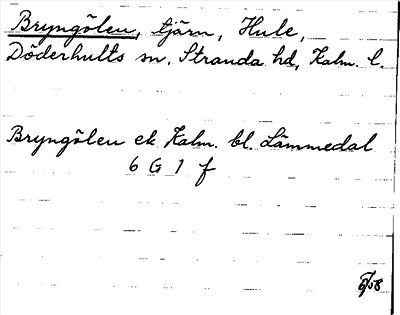 Bryngölen, tjärn, Hule,
Döderhults sn, Stranda hd, Kalm. l.
Bryngölen ek Kalm. bl. Lämmedal
6 G 1 f